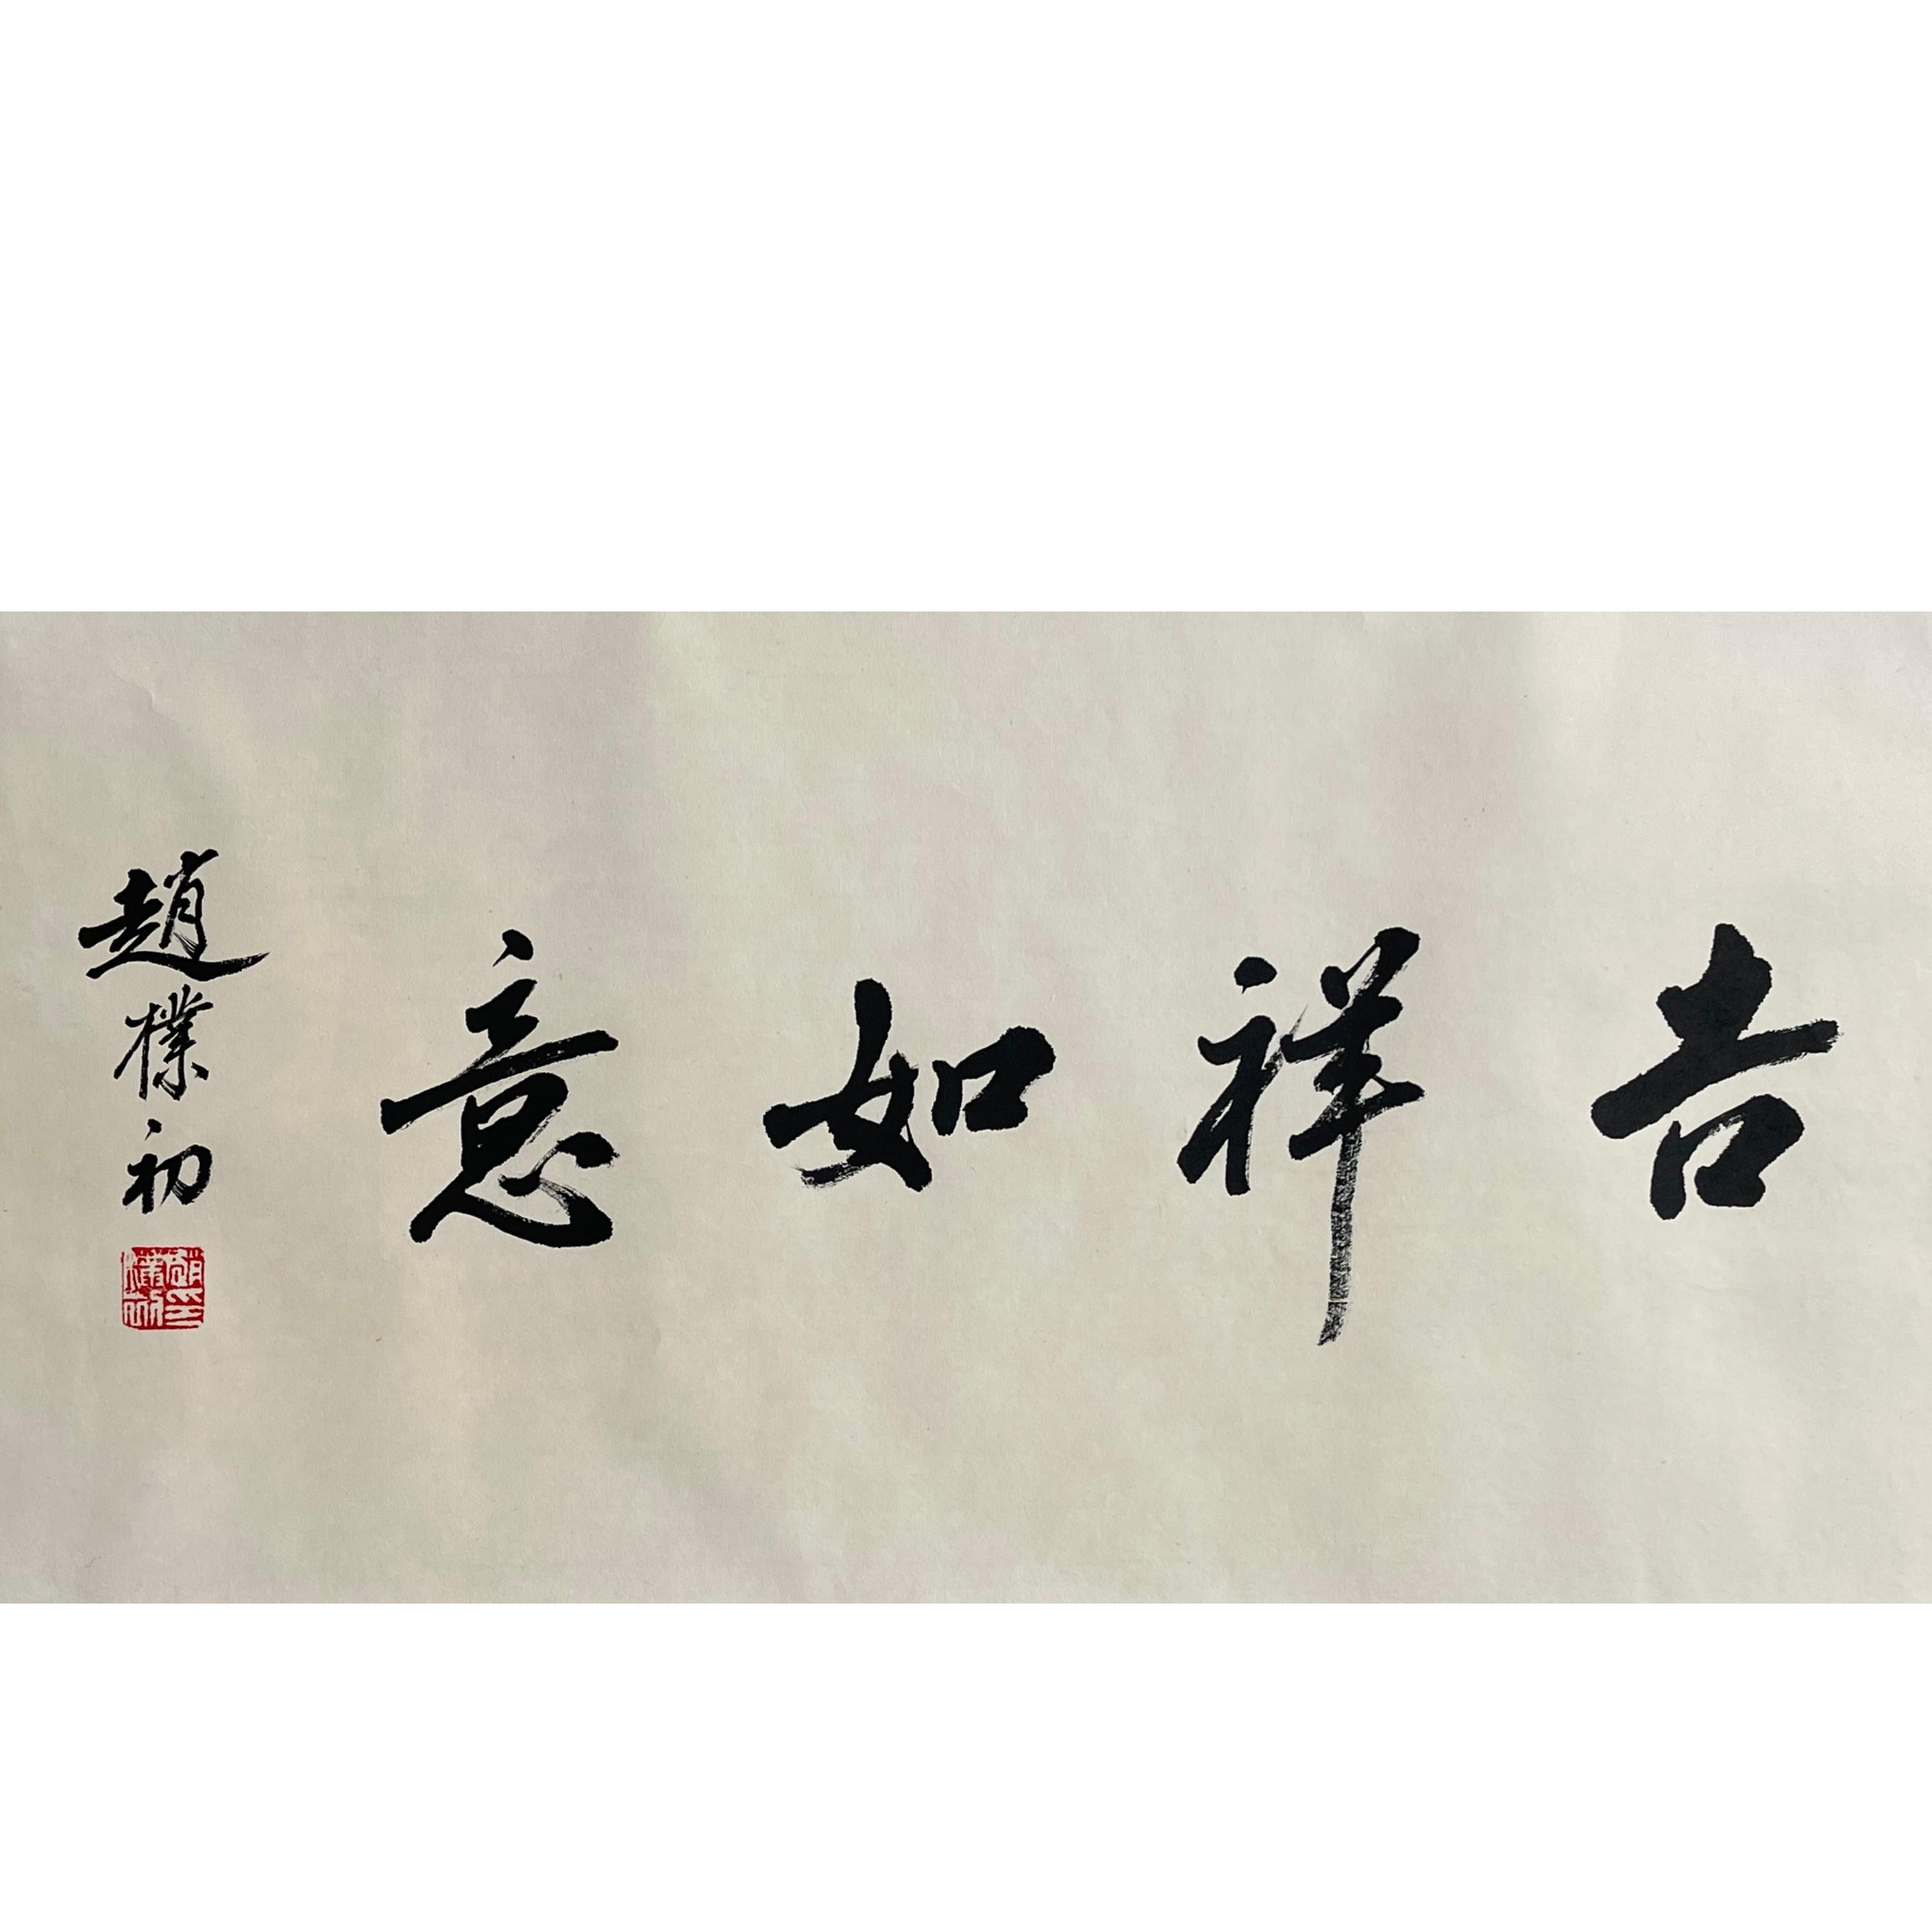 吉祥如意
趙樸初
趙樸初印